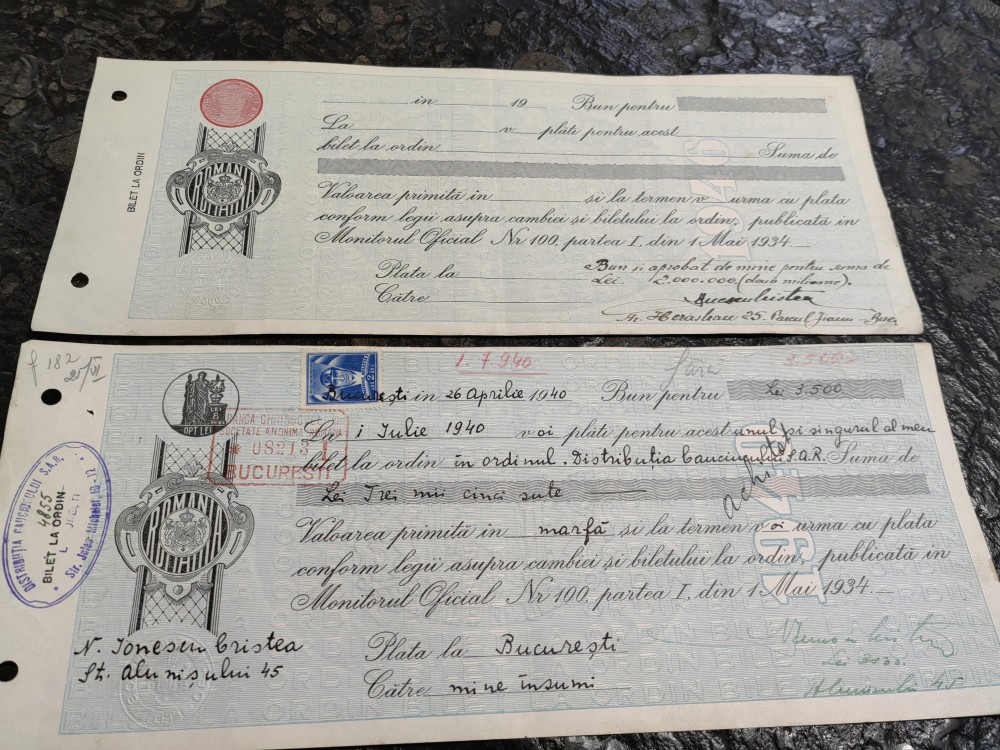 BILET LA ORDIN
ROMANIA
in 19 Bun pentru
La v plăti pentru acest
bilet la ordin Suma de
1946
Valoarea primită în și la termen v urma cu plata
conform legii asupra cambiei și biletului la ordin, publicată în
Monitorul Oficial Nr 100, partea I, din 1 Mai 1934.
Bun și aprobat de mine pentru suma de
Plata la
Lei 2.000.000 (două milioane).
Către
25
182
21/VI
1.7.940
OPT LEI
București in 26 Aprilie 1940 Bun pentru Lei 3.500
SOCIETATE ANONIMA
* US213
BUCUREȘTI
La 1 Iulie 1940 voi plăti pentru acest unul și singurul al meu
bilet la ordin în ordinul Distribuția Cauciucului S.A.R. Suma de
Lei Trei mii cinci sute
achitat
1940
DISTRIBUȚIA CAUCIUCULUI S.A.R.
4855
BILET LA ORDIN
ROMANIA
Valoarea primită în marfă și la termen voi urma cu plata
conform legii asupra cambiei și biletului la ordin, publicată în
Monitorul Oficial Nr 100, partea I, din 1 Mai 1934.
N. Ionescu Cristea
St. Alunișului 45
Plata la București
Către mine însumi